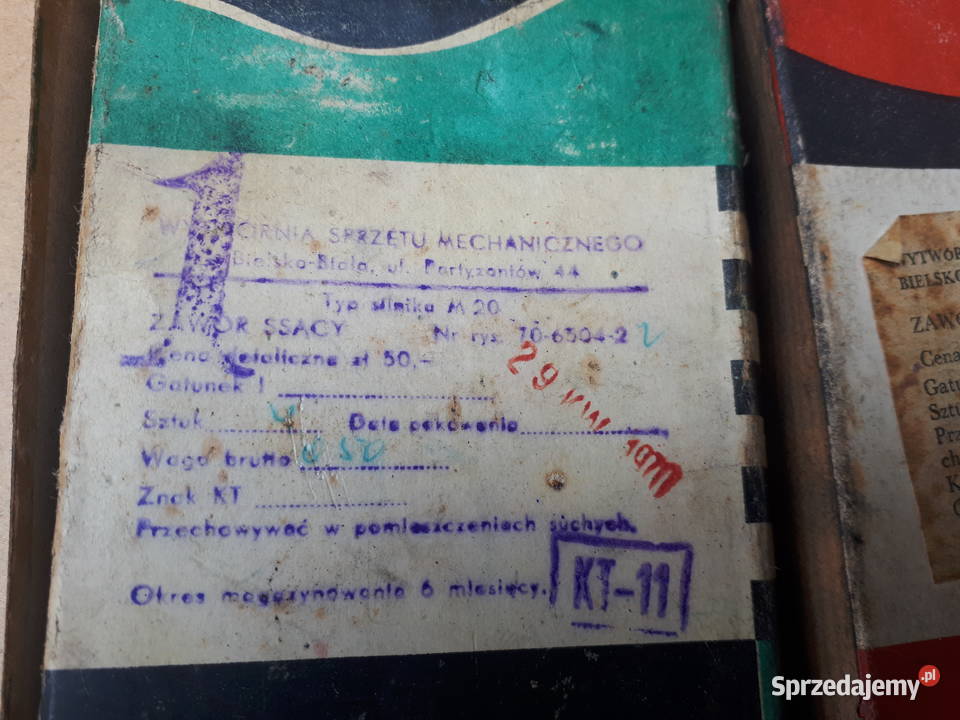 1
WYTWÓRNIA SPRZĘTU MECHANICZNEGO
Bielsko-Biała, ul. Partyzantów 44
Typ silnika M 20
ZAWÓR SSĄCY Nr rys. 70-6504-2
Cena detaliczna zł 50,-
Gatunek I
Sztuk 4 Data pakowania
29 1977
Waga brutto 0 50
Znak KT
Przechowywać w pomieszczeniach suchych.
Okres magazynowania 6 miesięcy.
KT-11
WYTWÓR
BIELSKO
ZAWO
Cena
Gatu
Sztu
Prz
ch
K
Sprzedajemy.pl